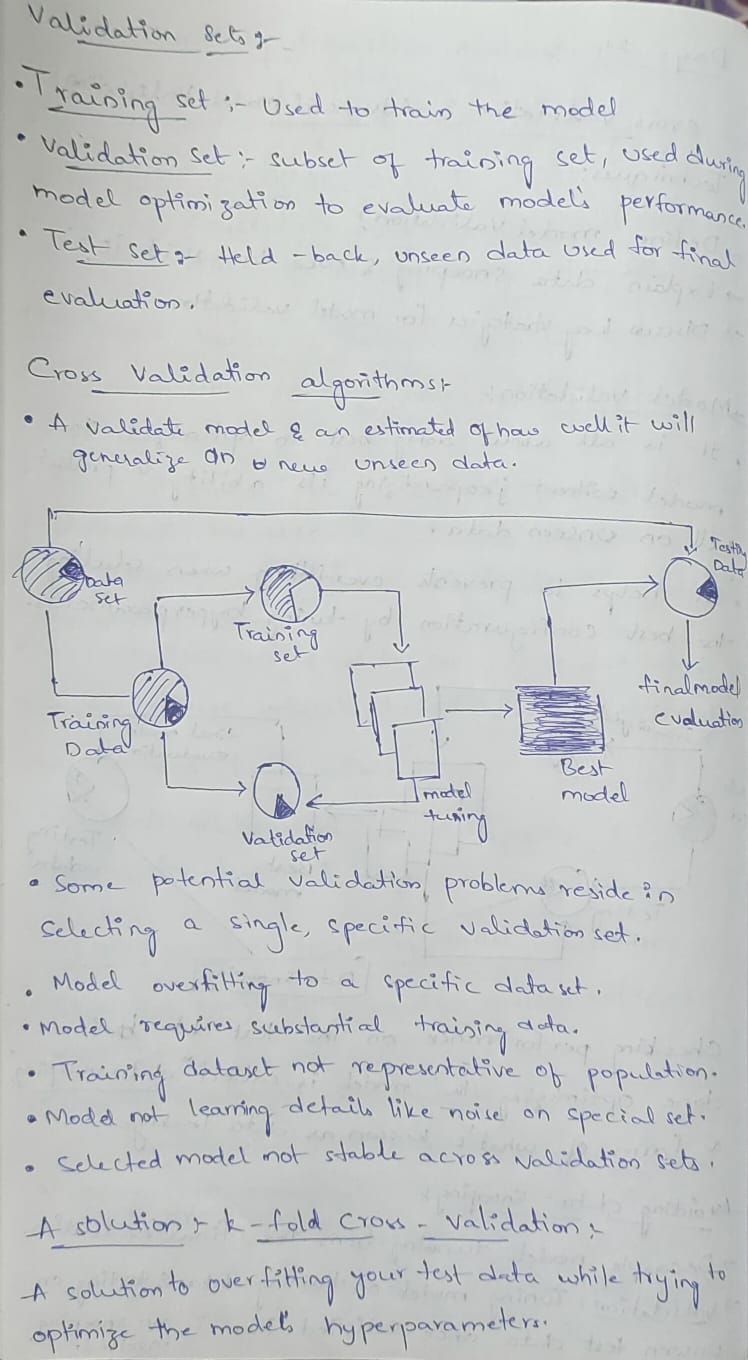 Validation Sets :-
• Training set :- Used to train the model
• Validation Set :- subset of training set, used during
model optimization to evaluate model's performance.
• Test Set :- Held-back, unseen data used for final
evaluation.
Cross Validation algorithms :-
• A validate model & an estimated of how well it will
generalize on new unseen data.
Testing
Data
Data
Set
Training
set
final model
evaluation
Training
Data
Best
model
model
tuning
Validation
set
• Some potential validation problems reside in
Selecting a single, specific validation set.
• Model overfitting to a specific data set.
• Model requires substantial training data.
• Training dataset not representative of population.
• Model not learning details like noise on special set.
• Selected model not stable across validation sets.
A solution :- k-fold cross-validation :-
A solution to overfitting your test data while trying to
optimize the model's hyperparameters.